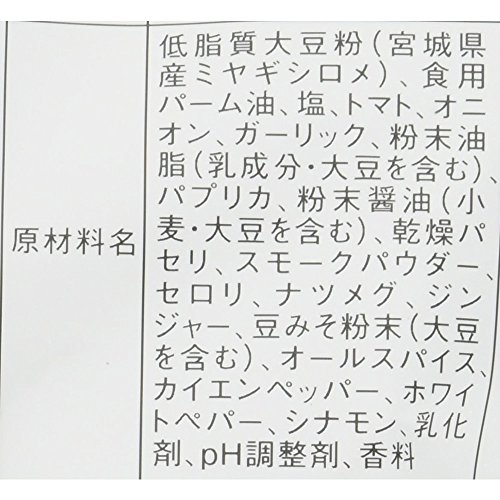 原材料名
低脂質大豆粉(宮城県
産ミヤギシロメ)、食用
パーム油、塩、トマト、オニ
オン、ガーリック、粉末油
脂(乳成分・大豆を含む)、
パプリカ、粉末醤油(小
麦・大豆を含む)、乾燥パ
セリ、スモークパウダー、
セロリ、ナツメグ、ジン
ジャー、豆みそ粉末(大豆
を含む)、オールスパイス、
カイエンペッパー、ホワイ
トペパー、シナモン、乳化
剤、pH調整剤、香料